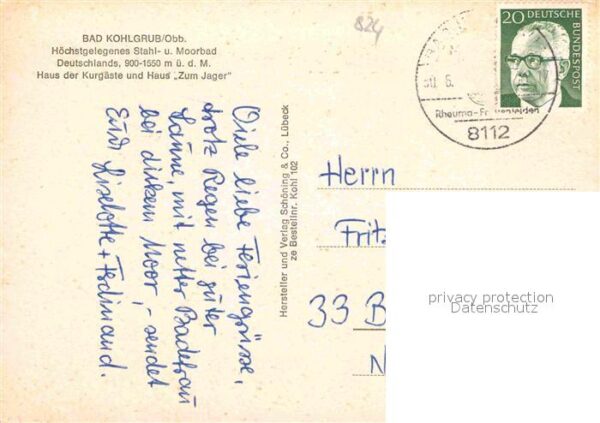 BAD KOHLGRUB/Obb.
Höchstgelegenes Stahl- u. Moorbad
Deutschlands, 900-1550 m ü. d. M.
Haus der Kurgäste und Haus „Zum Jager"
824
20 DEUTSCHE
BUNDESPOST
8112
Viele liebe Feriengrüsse,
trotz Regen bei guter
Laune, mit netter Badefrau
bei dickem Moor, - sendet
Liselotte + Ferdinand.
Hersteller und Verlag Schöning & Co., Lübeck
ze Bestellnr. Kohl 102
Herrn
Fritz
33 B
N
privacy protection
Datenschutz